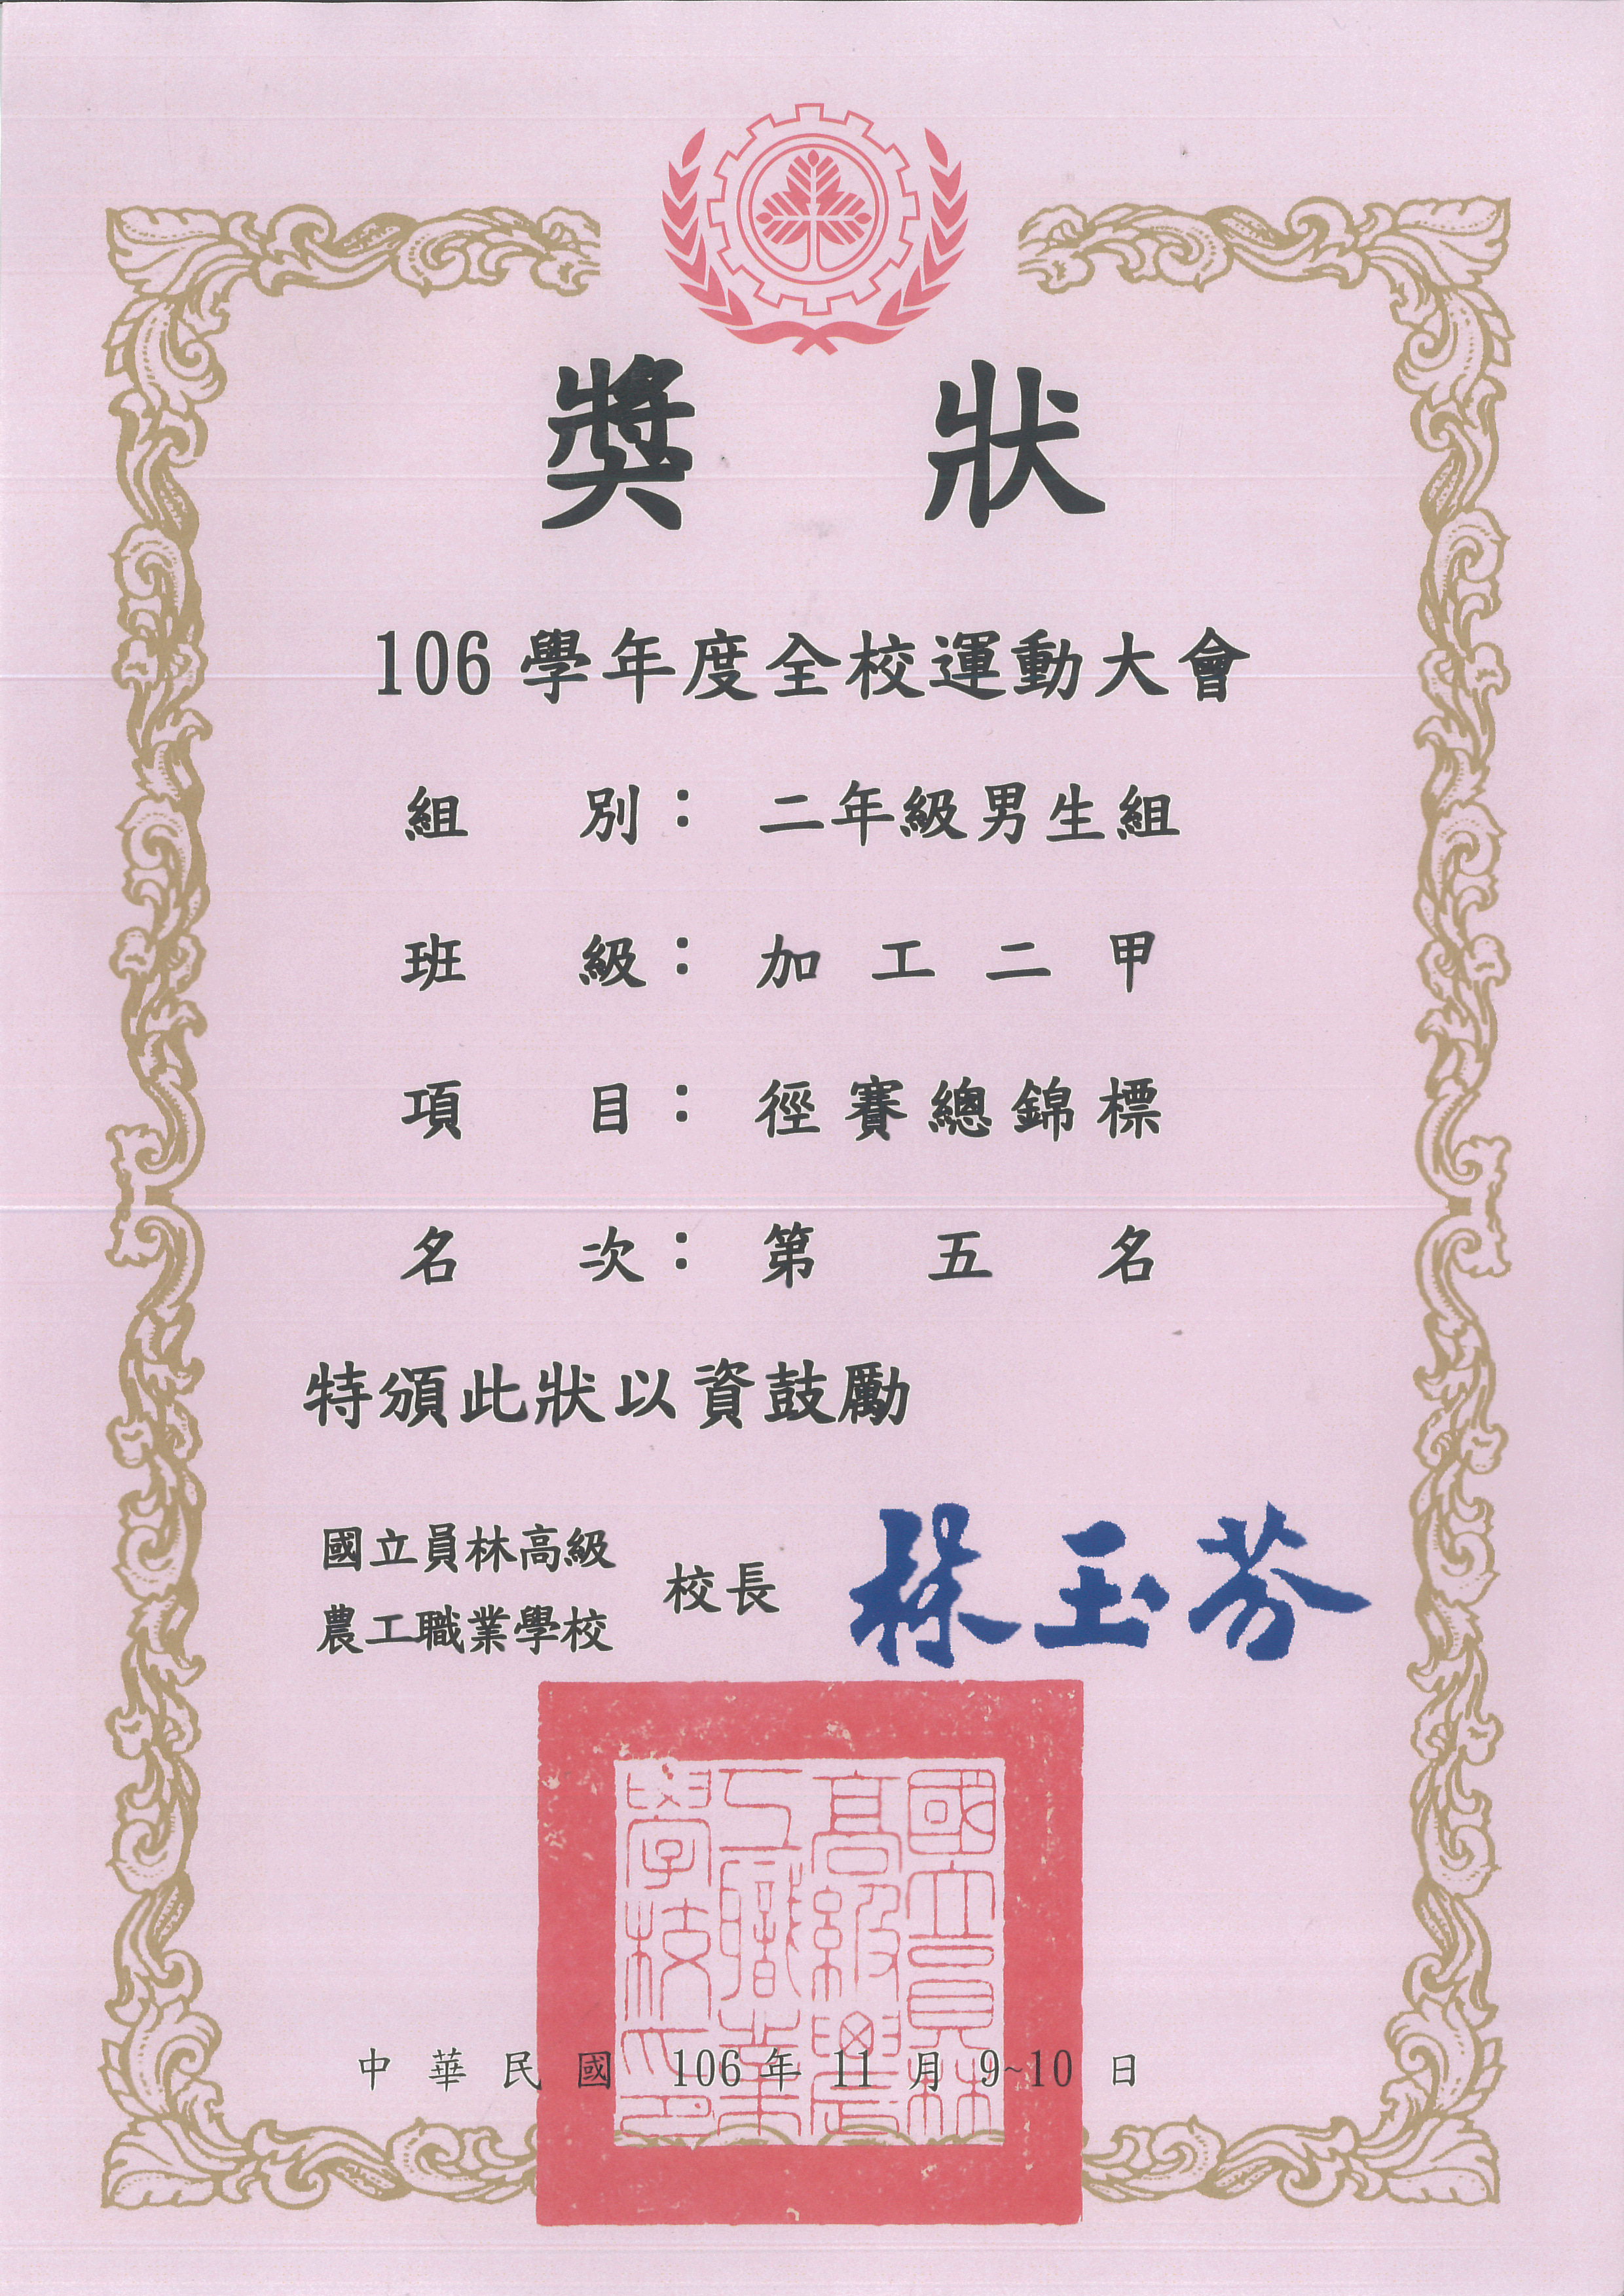 獎狀
106學年度全校運動大會
組別：二年級男生組
班級：加工二甲
項目：徑賽總錦標
名次：第五名
特頒此狀以資鼓勵
國立員林高級
農工職業學校
校長 林玉芬
國立員林高級農工職業學校印
中華民國 106年11月9~10日